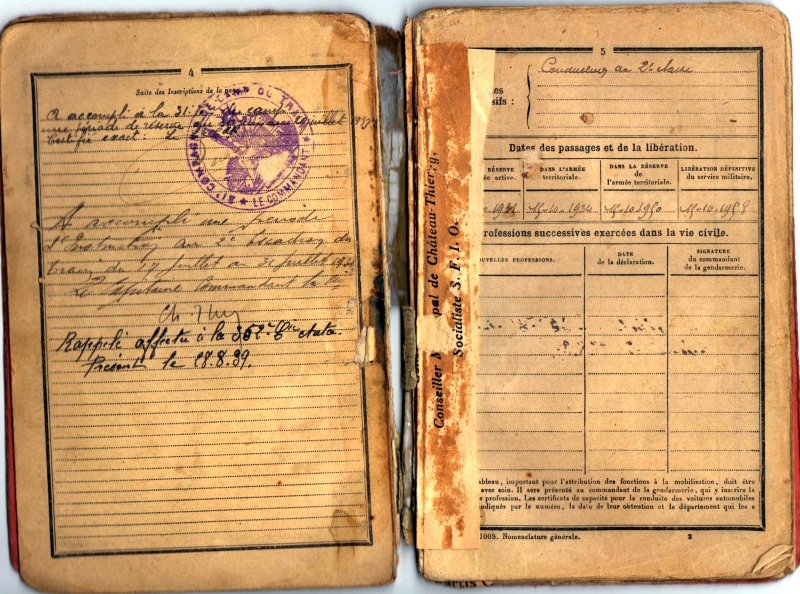 4
Suite des Inscriptions de la page
a accompli à la 31e
une période de réserve du
Certifié exact
COMPAGNIE DU CAMP DU
★ LE COMMANDANT ★
A accompli une période
d'Instruction au 2e Escadron du
train du 17 juillet au 31 juillet 1934
Le Capitaine Commandant la
Rappelé affecté à la 362e Cie Auto.
Présent le 28.8.39.
Conseiller pal de Château-Thierry,
Socialiste S. F. I. O.
5
Conducteur de 2e classe
sifs :
Dates des passages et de la libération.
RÉSERVE
ée active.
DANS L'ARMÉE
territoriale.
DANS LA RÉSERVE
de l'armée territoriale.
LIBÉRATION DÉFINITIVE
du service militaire.
15-10-1934
15-10-1950
15-10-1958
rofessions successives exercées dans la vie civile.
OUVELLES PROFESSIONS.
DATE
de la déclaration.
SIGNATURE
du commandant
de la gendarmerie.
ableau, important pour l'attribution des fonctions à la mobilisation, doit être
avec soin. Il sera présenté au commandant de la gendarmerie, qui y inscrira la
e profession. Les certificats de capacité pour la conduite des voitures automobiles
ndiqués par le numéro, la date de leur obtention et le département qui les a
1008. Nomenclature générale.